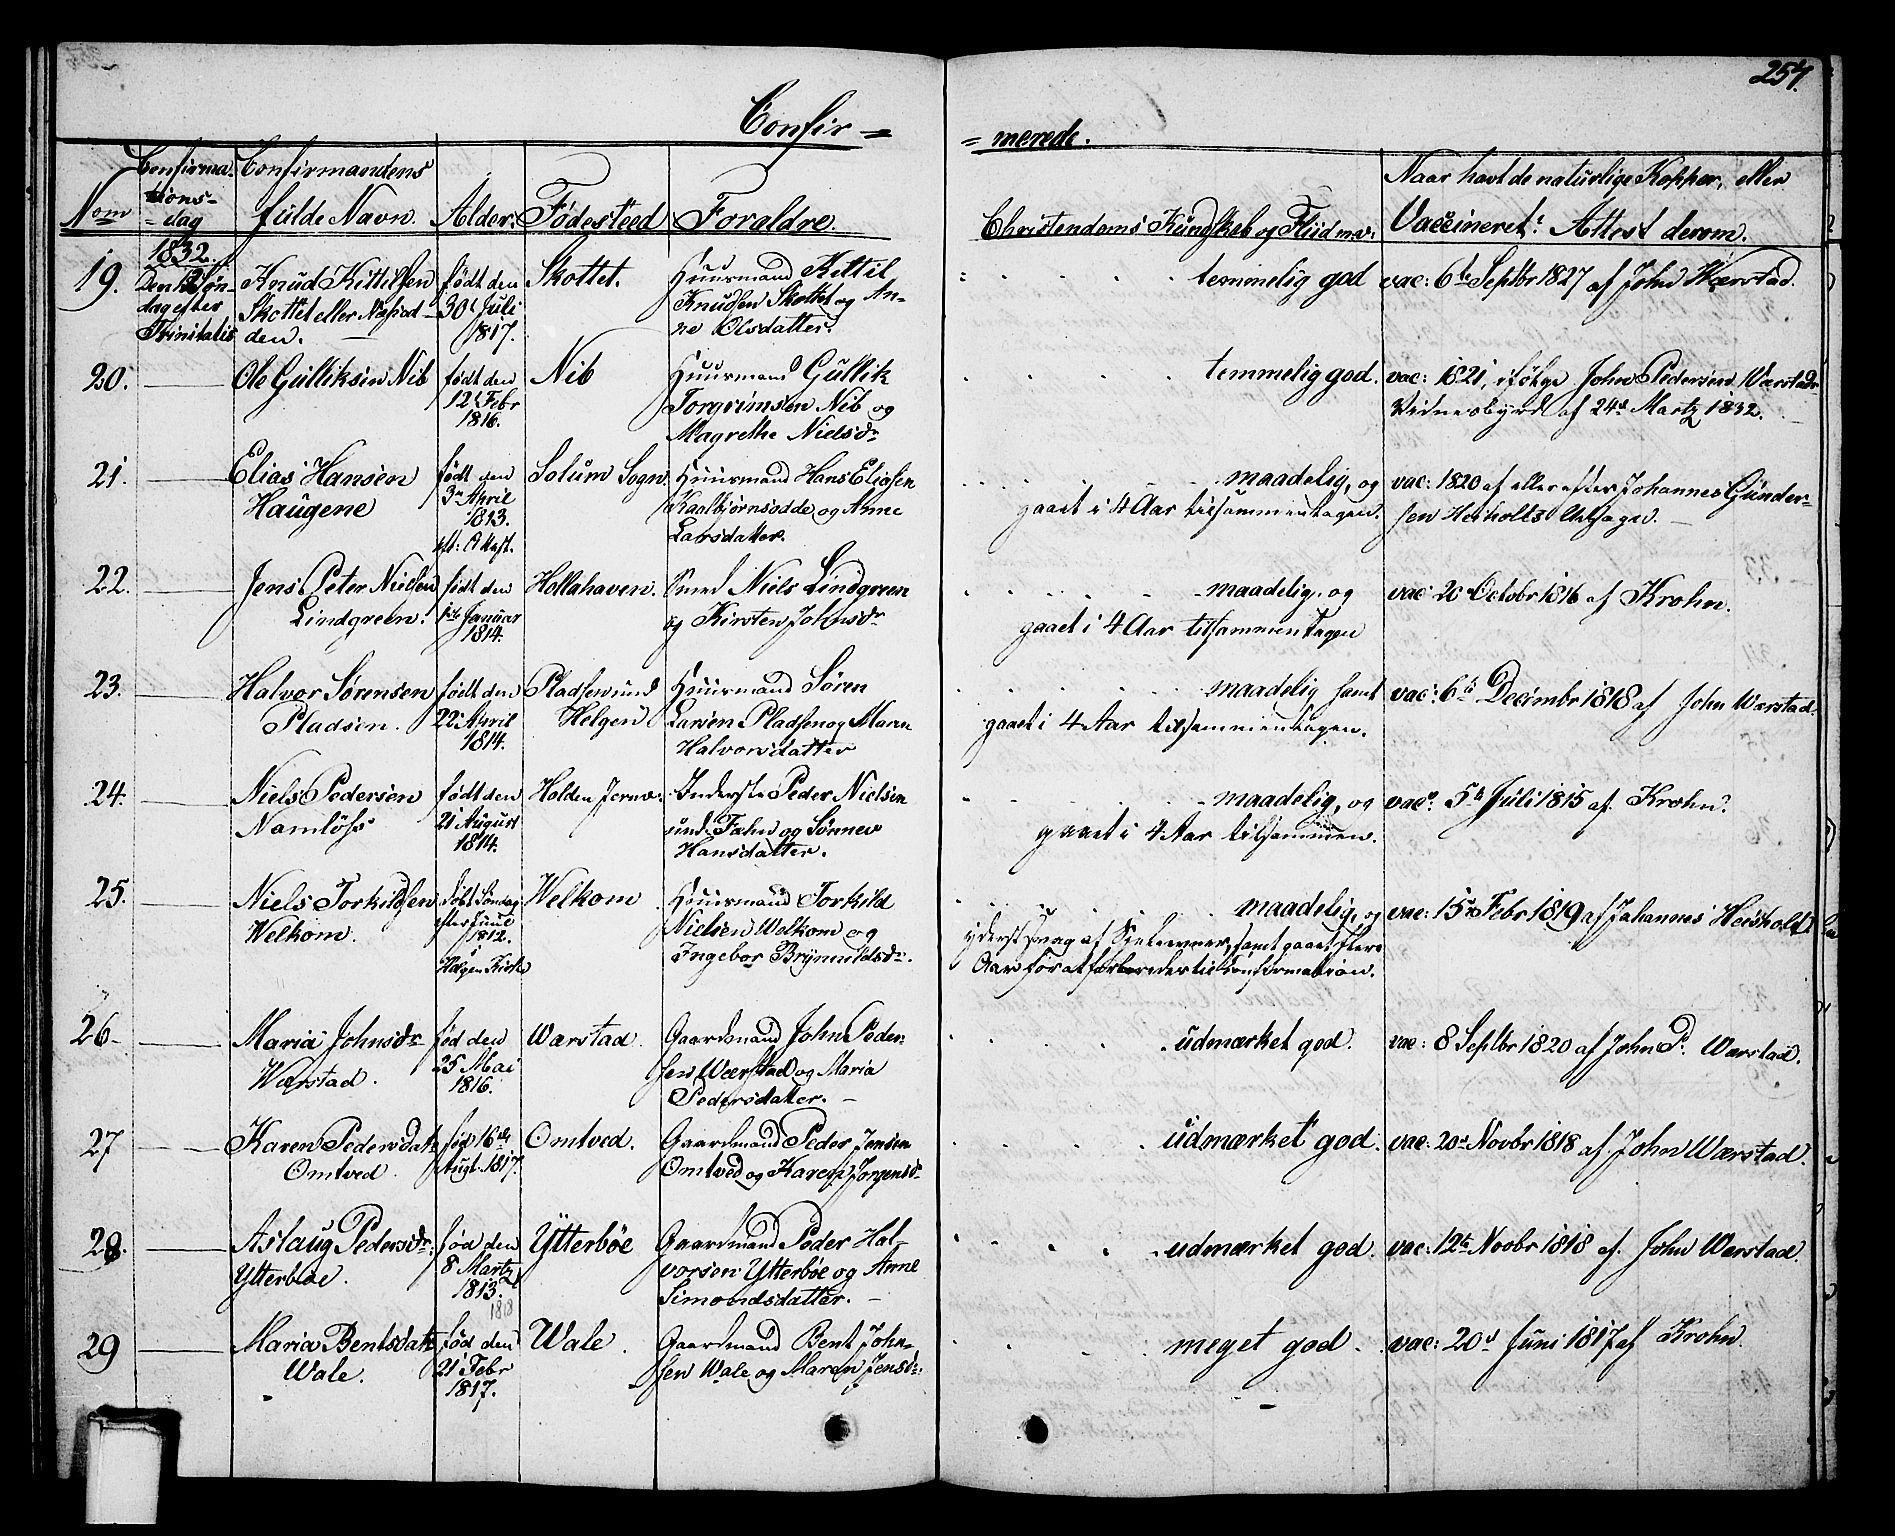 254.
Confir= =merede.
Nom
Confirma-
tions-
-dag
Confirmandens
fulde Navn.
Alder.
Fødesteed
Foraldre.
Christendoms Kundskab og Fliid m.v.
Naar havt de naturlige Kopper, eller
Vaccineret: Attest derom.
1832.
19.
Søn-
dag efter
Trinitatis
Knud Kittilsen
Skottet eller
den.
født den
30t Juli
1817.
Skottet.
Huusmand Kittil
Knudsen Skottet og An-
ne Olsdatter.
temmelig god
vac: 6te Septbr 1827 af John Wærstad.
20.
Ole Gulliksen Nib
født den
12t Febr
1816.
Nib
Huusmand Gullik
Torgrimsen Nib og
Magrethe Nielsdr
temmelig god.
vac: 1821, ifølge John Pedersen Wærstads
Vidnesbyrd af 24d Martz 1832.
21.
Elias Hansen
Haugene
født den
3n April
1813.
Attest.
Solum Sogn
Huusmand Hans Eliasen
Kaalbjørnsodde og Anne
Larsdatter.
maadelig, og
gaaet i 4 Aar tilsammentagen.
vac: 1820 af eller efter Johannes Gunder-
sen Heisholts Udsagn.
22.
Jens Peter Nielsen
Lindgreen.
født den
1ste Januar
1814.
Hollahaven.
Smed Niels Lindgreen
og Kirsten Johnsdr
maadelig, og
gaaet i 4 Aar tilsammentagen
vac: 20 Octobr 1816 af Krohn.
23.
Halvor Sørensen
Pladsen.
født den
22 April
1814.
Pladsen und
Helgen
Huusmand Søren
Larsen Pladsen og Maren
Halvorsdatter
maadelig samt
gaaet i 4 Aar tilsammentagen.
vac: 6te Decembr 1818 af John Wærstad.
24.
Niels Pedersen
Namløss
født den
21 August
1814.
Holden Jernv.
Inderste Peder Nielsen
und: Fæhn og Sønnev
Hansdatter.
maadelig, og
gaaet i 4 Aar tilsammen.
vac: 5te Juli 1815 af Krohn.
25.
Niels Torkildsen
Welkom.
døbt Søndag
efter Juul
1812.
i
Helgen Kirke
Welkom
Huusmand Torkild
Nielsen Welkom og
Ingebor Brynnildsdr.
maadelig, og
yderst svag af Sjeleevner, samt gaaet flere
Aar for at forberedes til Confirmation.
vac: 15n Febr 1819 af Johannes Heisholt
26.
Maria Johnsdr
Wærstad.
fød den
25 Mai
1816.
Wærstad
Gaardmand John Peder-
sen Wærstad og Maria
Pedersdatter.
udmærket god.
vac: 8 Septbr 1820 af John P. Wærstad.
27
Karen Pedersdatr
Omtved.
fød 16de
Augt. 1817.
Omtved.
Gaardmand Peder Jensen
Omtved og Karen Jørgensdr
udmærket god.
vac: 20d Novbr 1818 af John Wærstad.
28.
Aslaug Pedersdr
Ytterbøe.
fød den
8 Martz
1813.
1818
Ytterbøe
Gaardmand Peder Hal-
vorsen Ytterbøe og Anne
Simondsdatter.
udmærket god.
vac: 12te Novbr 1818 af John Wærstad.
29
Maria Bentsdatr
Wale.
fød den
21 Febr
1817.
Wale.
Gaardmand Bent John-
sen Wale og Maren Jensdr.
meget god.
vac: 20d Juni 1817 af Krohn.